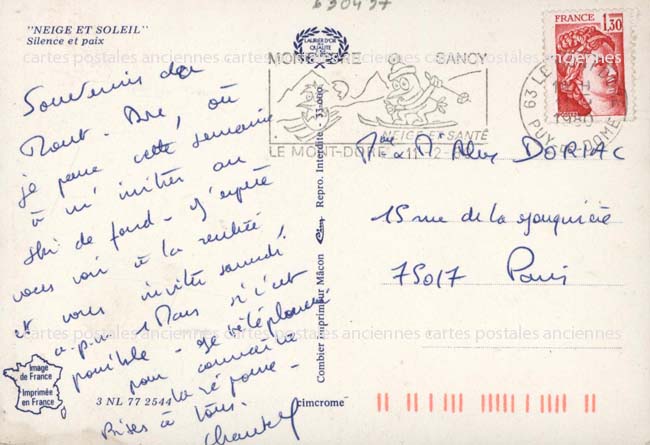 630437
"NEIGE ET SOLEIL"
Silence et paix
Souvenirs du
Mont-Dore, où
je passe cette semaine
à m'initier au
ski de fond - J'espère
vous voir à la rentrée
et vous invite samedi
a.p.m 1 Mars si c'est
possible - Je téléphonerai
pour connaître
la réponse -
Bises à tous.
Chantal
Image
de France
Imprimée
en France
3 NL 77 2544
cimcrome
Combier Imprimeur Mâcon Cim Repro. Interdite - 33.000
LAURIER D'OR
DE LA
QUALITÉ
MONT-DORE SANCY
NEIGE ET SANTÉ
LE MONT-DORE
63 LE
11-2
1980
PUY-DE-DOME
FRANCE
1,30
Mme & Mr Alex DORIAC
15 rue de la Jonquière
75017 Paris
cartes postales anciennes cartes postales anciennes cartes postales anciennes
cartes postales anciennes cartes postales anciennes cartes postales anciennes